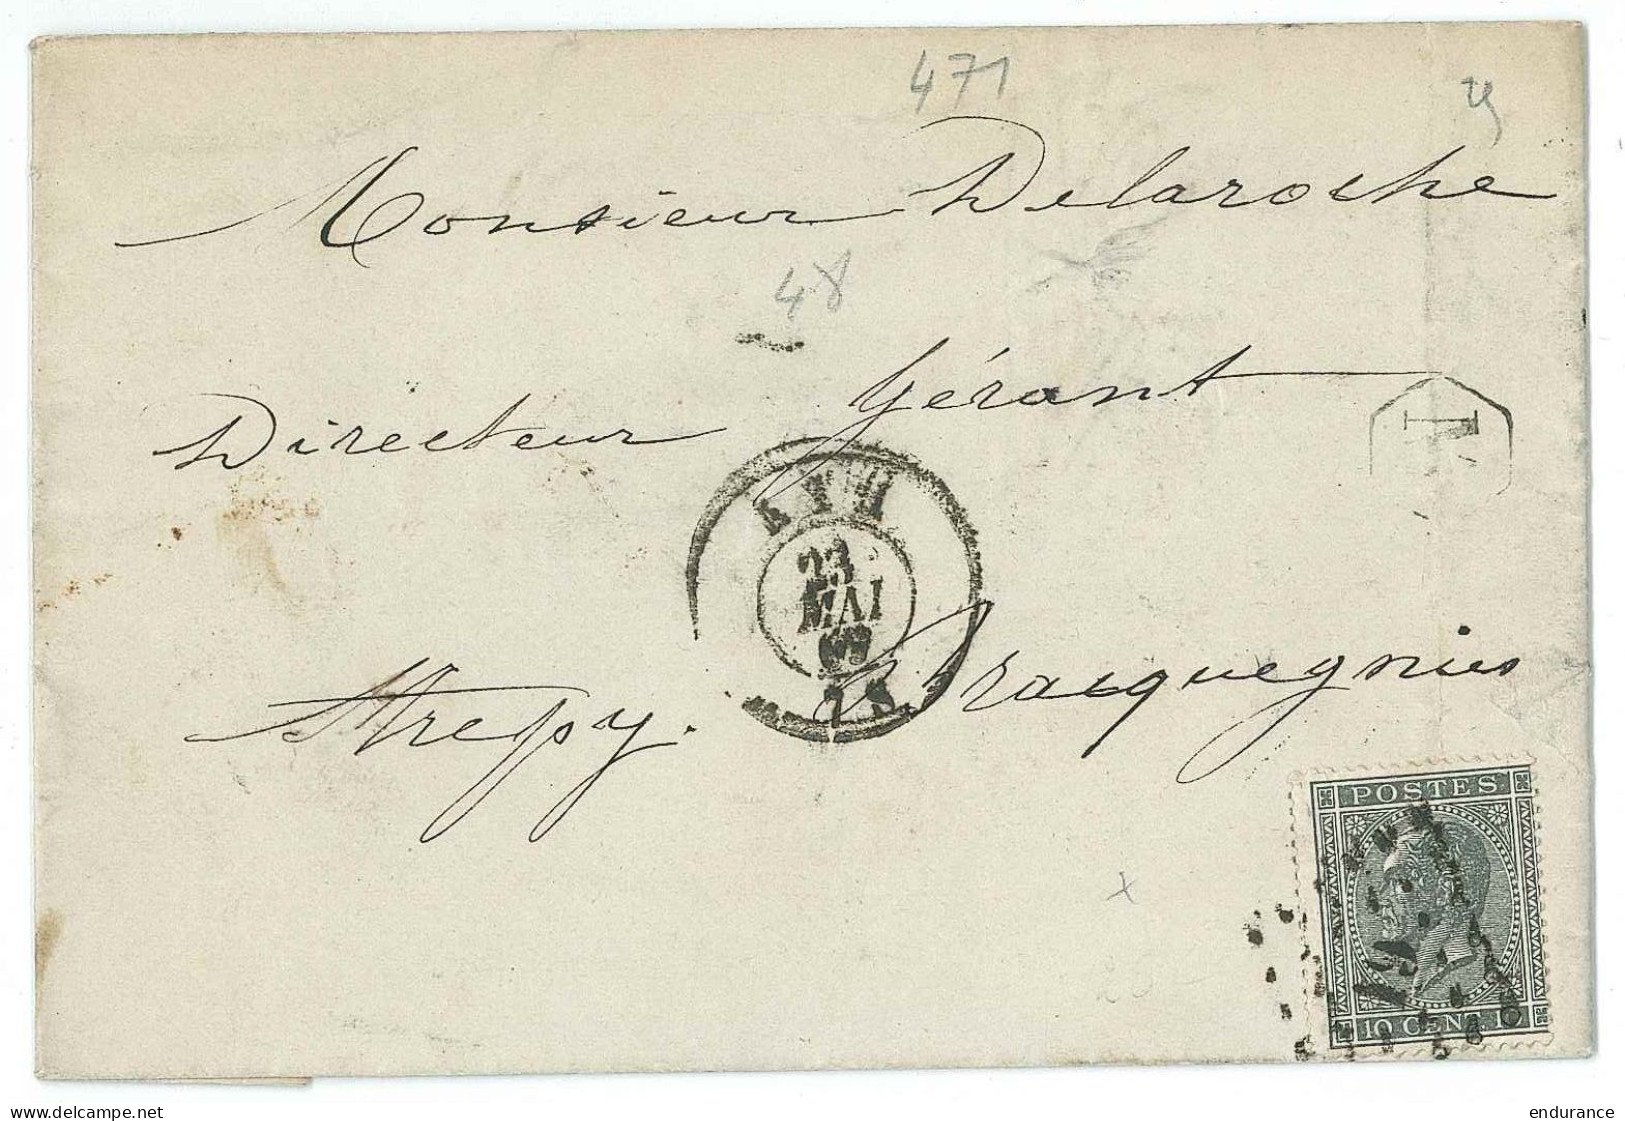 471
25
Monsieur Delaroche
48
Directeur Gérant
N
ATH
23
MAI
69
7 S
Strepy. Bracquegnies
POSTES
10 CENT. 10
www.delcampe.net
endurance